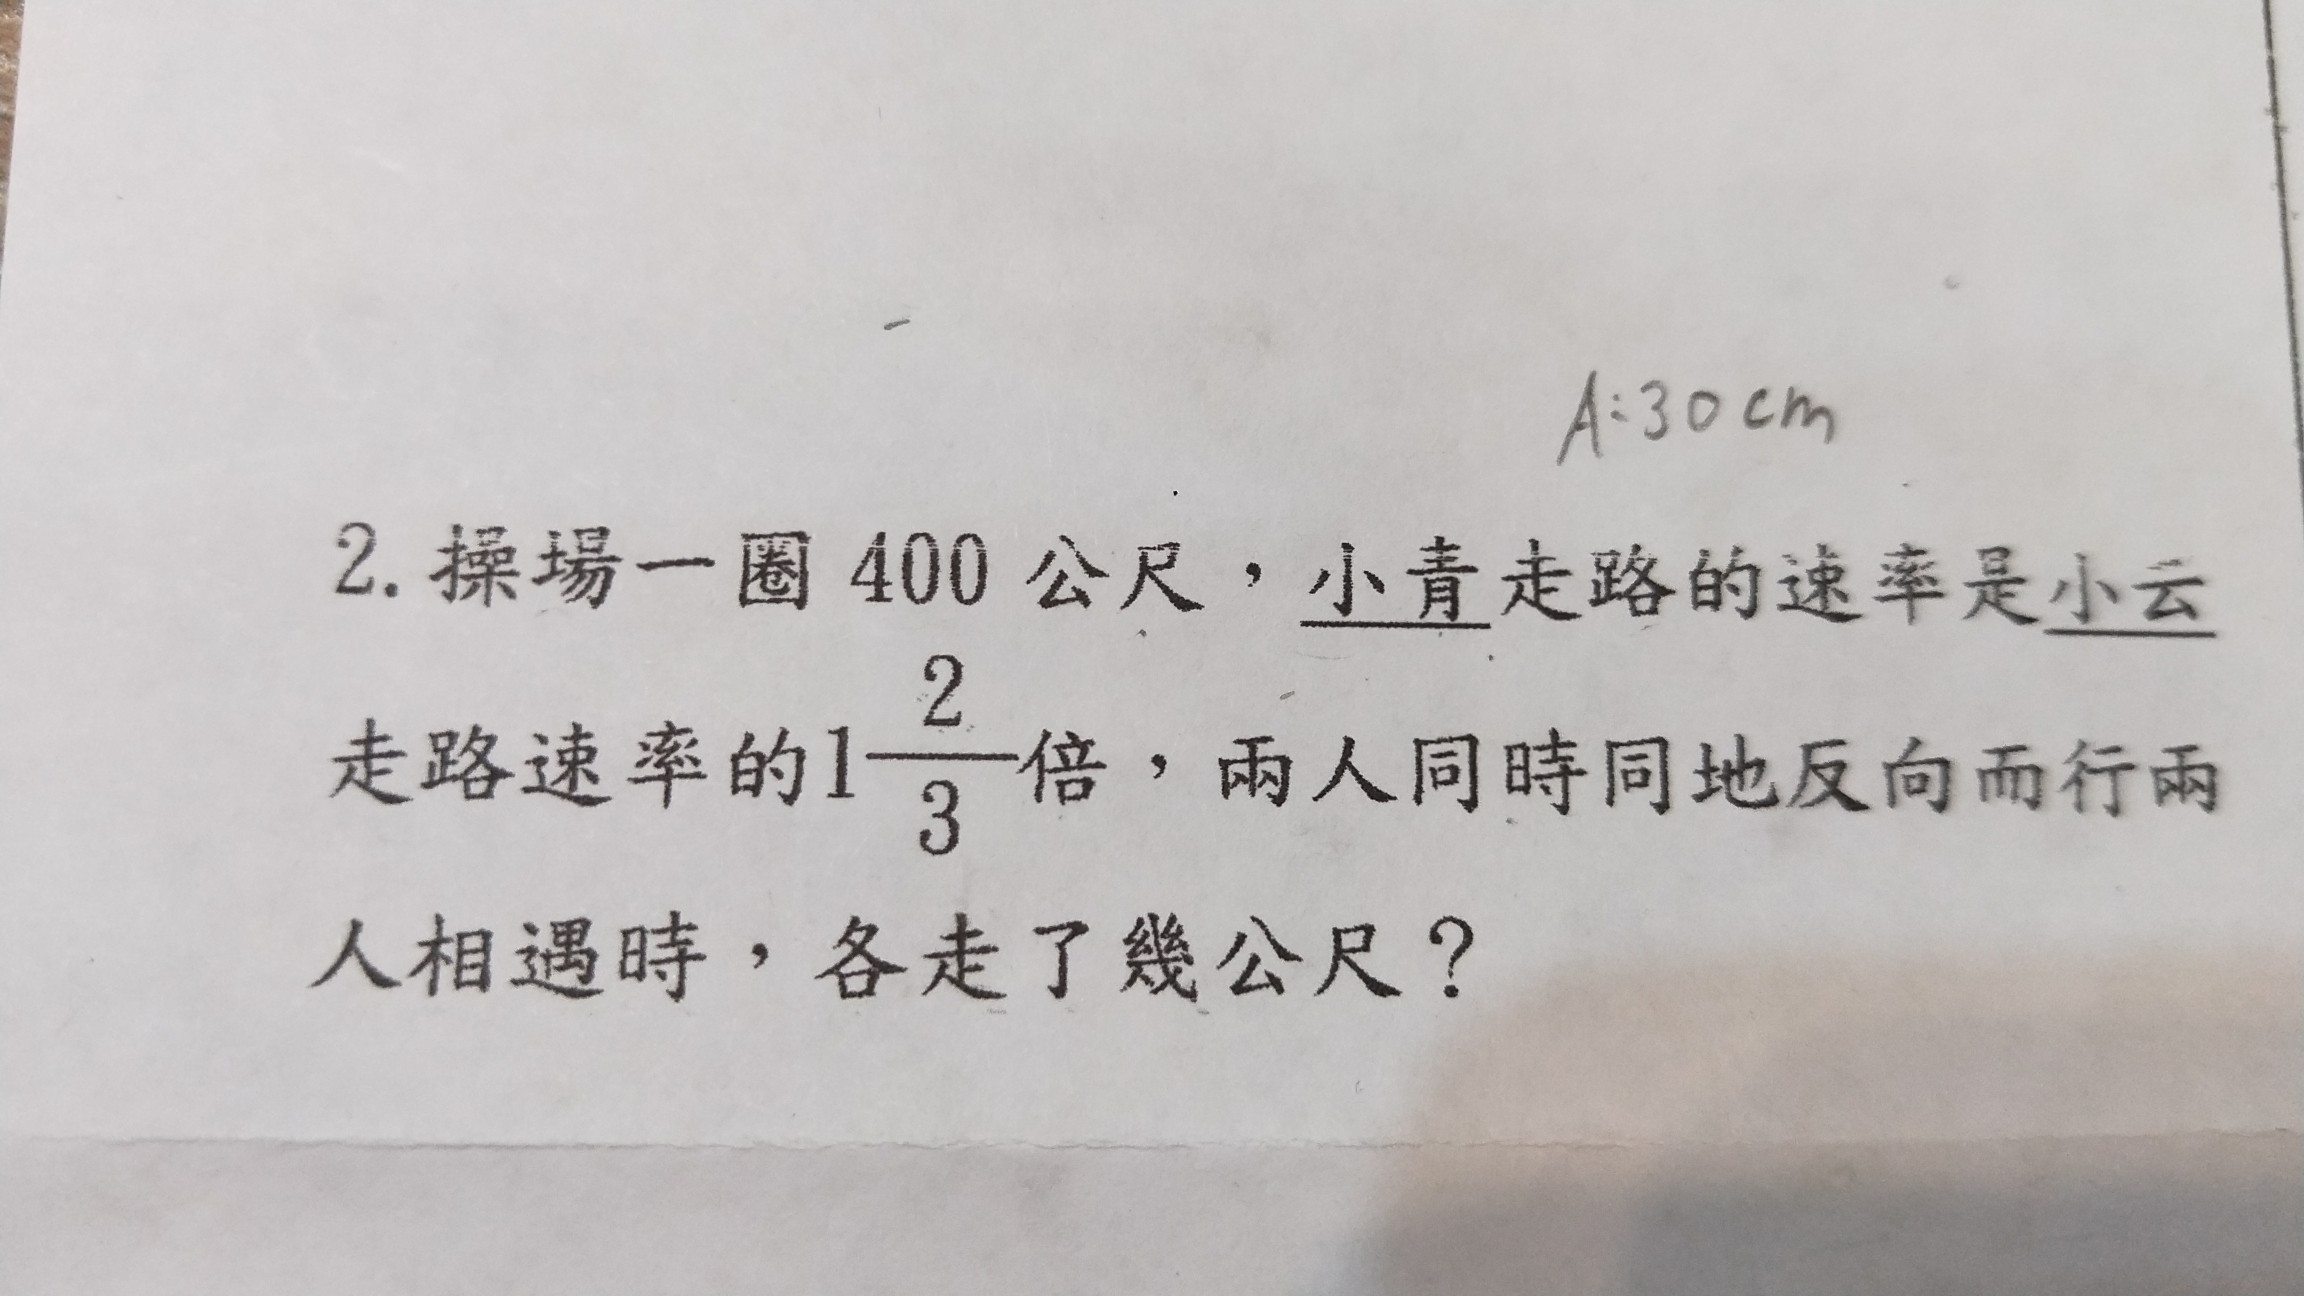 A:30cm
2.操場一圈 400 公尺，小青走路的速率是小云
走路速率的1 2/3 倍，兩人同時同地反向而行兩
人相遇時，各走了幾公尺？